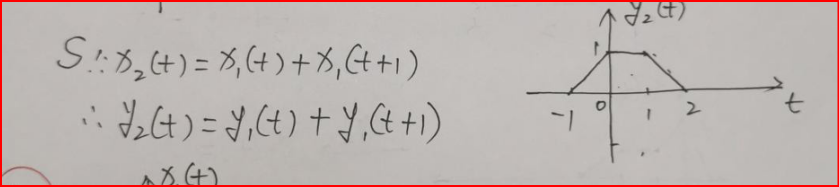 S ∵ x₂(t) = x₁(t) + x₁(t+1)
∴ y₂(t) = y₁(t) + y₁(t+1)
y₂(t)
1
-1 0 1 2 t
x₁(t)